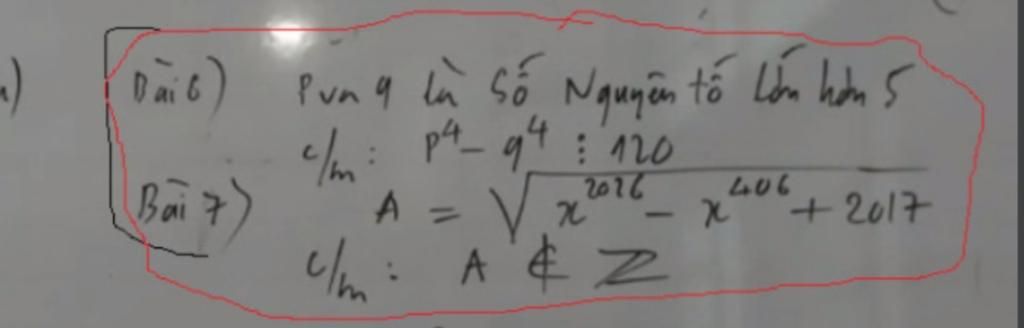 Bài 6) P và q là Số Nguyên tố lớn hơn 5
c/m: P⁴ - q⁴ ⋮ 120
Bài 7) A = √(x²⁰²⁶ - x⁴⁰⁶ + 2017)
c/m: A ∉ Z